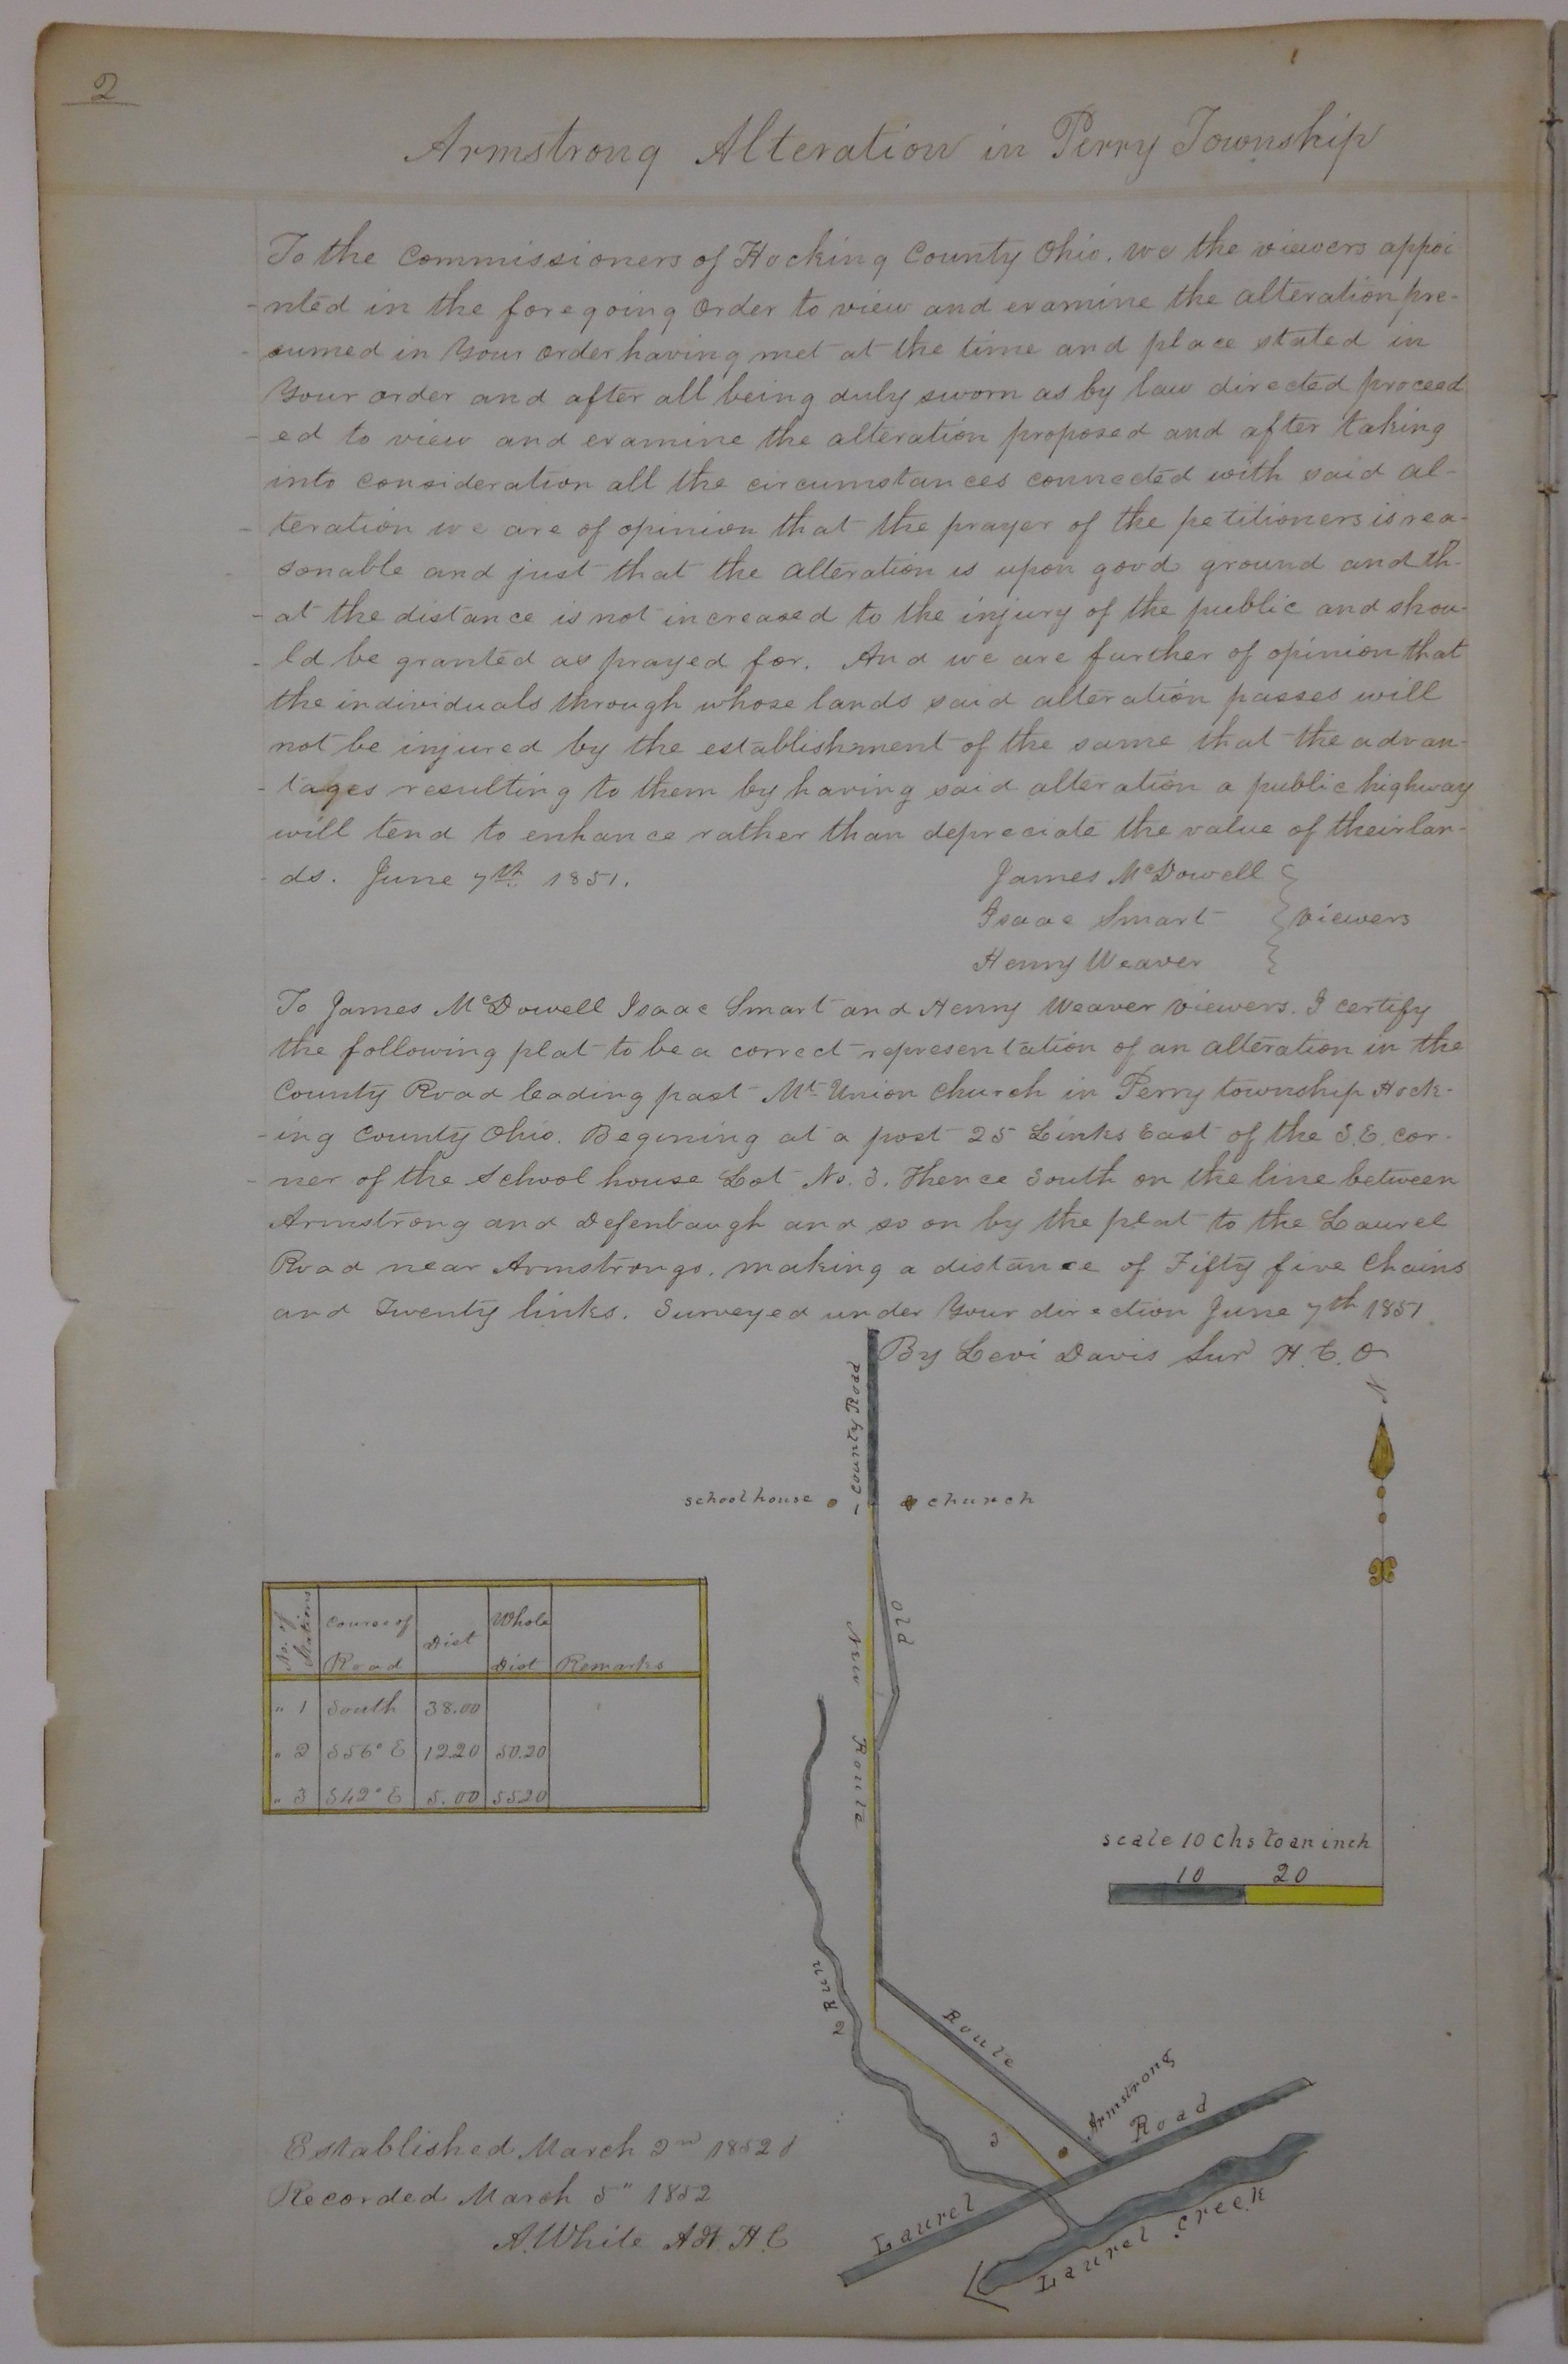 2
Armstrong Alteration in Perry Township
To the Commissioners of Hocking County Ohio. we the viewers appoi
-nted in the foregoing order to view and examine the alteration pre-
-sumed in Your order having met at the time and place stated in
Your order and after all being duly sworn as by law directed proceed
-ed to view and examine the alteration proposed and after taking
into consideration all the circumstances connected with said al-
-teration we are of opinion that the prayer of the petitioners is rea-
-sonable and just that the alteration is upon good ground and th-
-at the distance is not increased to the injury of the public and shou-
-ld be granted as prayed for. And we are further of opinion that
the individuals through whose lands said alteration passes will
not be injured by the establishment of the same that the advan-
-tages resulting to them by having said alteration a public highway
will tend to enhance rather than depreciate the value of their lan-
-ds. June 7th 1851.
James McDowell
Isaac Smart
Henry Weaver
viewers
To James McDowell Isaac Smart and Henry Weaver viewers. I certify
the following plat to be a correct representation of an alteration in the
County Road leading past Mt Union Church in Perry township Hock-
-ing County Ohio. Begining at a post 25 Links East of the S.E. cor-
-ner of the School house Lot No. 3. Thence South on the line between
Armstrong and Defenbaugh and so on by the plat to the Laurel
Road near Armstrongs. making a distance of Fifty five Chains
and Twenty links. Surveyed under Your direction June 7th 1851.
By Levi Davis Sur H.C.O
N
County Road
schoolhouse
church
Old
New Route
No. of Stations
Course of Road
Dist
Whole Dist
Remarks
" 1 South 38.00
" 2 S56° E 12.20 50.20
" 3 S42° E 5.00 55.20
scale 10 chs to an inch
10 20
2
Run
Route
3
Armstrong
Laurel Road
Laurel Creek
Established March 2nd 1852
Recorded March 5" 1852
A. White Adt. H.C